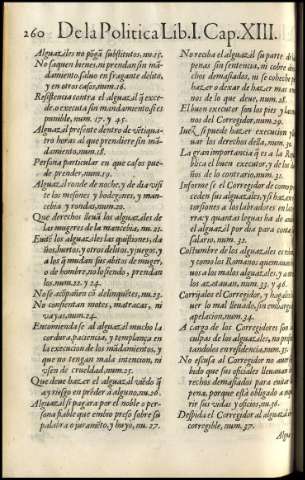 260 De la Politica Lib. I. Cap. XIII.
Alguaziles no pōgā substitutos, nu. 15.
No saquen bienes, ni prendan sin mā-
damiento, saluo en fragante delito,
y en otros casos, num. 16.
Resistencia contra el alguazil q̄ exce-
de o executa sin mandamiento, si es
punible, num. 17. y 45.
Alguazil presente dentro de vētiqua-
tro horas al que prendiere sin mā-
damiento, num. 18.
Persona particular en que casos pue-
de prender, num. 19.
Alguazil ronde de noche, y de dia visi-
te los mesones y bodegones, y man-
cebia, y tondas, num. 20.
Que derechos lleuā los alguaziles de
las mugeres de la mancebia, nu. 21.
Euitē los alguaziles las questiones, da-
ños, hurtos, y otros delitos, y juegos, y
a los q̄ mudan sus abitos de muger,
o de hombre, no lo siendo, prendan
los, num. 22. y 24.
No se acōpañen cō delinquētes, nu. 23.
No consientan motes, matracas, ni
vayas, num. 24.
Encomiendase al alguazil mucho la
cordura, paciencia, y templança en
la execucion de los mādamientos, y
que no tengan mala intencion, ni
vsen de crueldad, num. 25.
Que deue hazer el alguazil viēdo q̄
ay riesgo en prēder a alguno, nu. 26.
Alguazil si pagara por el noble o per-
sona fiable que embio preso sobre su
palabra o juramēto, y huyo, nu. 27.
No reciba el alguazil su parte de
penas sin sentencia, ni cobre
chos demasiados, ni se coheche
hazer o dexar de hazer mas
nos de lo que deue, num. 28.
El buen executor, son los pies y
nos del Corregidor, num. 29.
Iuez, si puede hazer execucion y
uar los derechos della, num. 30.
La gran importancia q̄ es a la Re
blica el buen executor, y de los
ños de lo contrario, num. 31.
Informese el Corregidor de como
ceden sus alguaziles, y si haz
torsiones a los labradores en la
rra: y quantas leguas ha de
el alguazil por dia para
salario, num. 32.
Costumbre de los alguaziles
y como los Romanos quemauan
uos a los malos alguaziles, y a
los azotauan, num. 33. y 46.
Corrijalos el Corregidor, y haga
uer lo mal lleuado, sin embargo
apelacion, num. 34.
A cargo de los Corregidores son
culpas de los alguaziles, no
tandolos en residencia, num. 35.
No escusa al Corregidor no auer
bido que sus oficiales lleuauan
rechos demasiados para euitar
pena, porque està obligado a
rir sus vidas y oficios, nu. 36.
Despida el Corregidor al alguazil
corregible, num. 37.
Algua